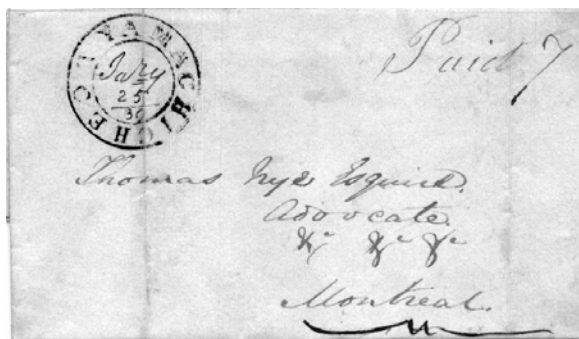 YAMACHICHE
Jary
25
Paid 7
Thomas Nye Esquire.
Advocate
&c &c &c
Montreal.